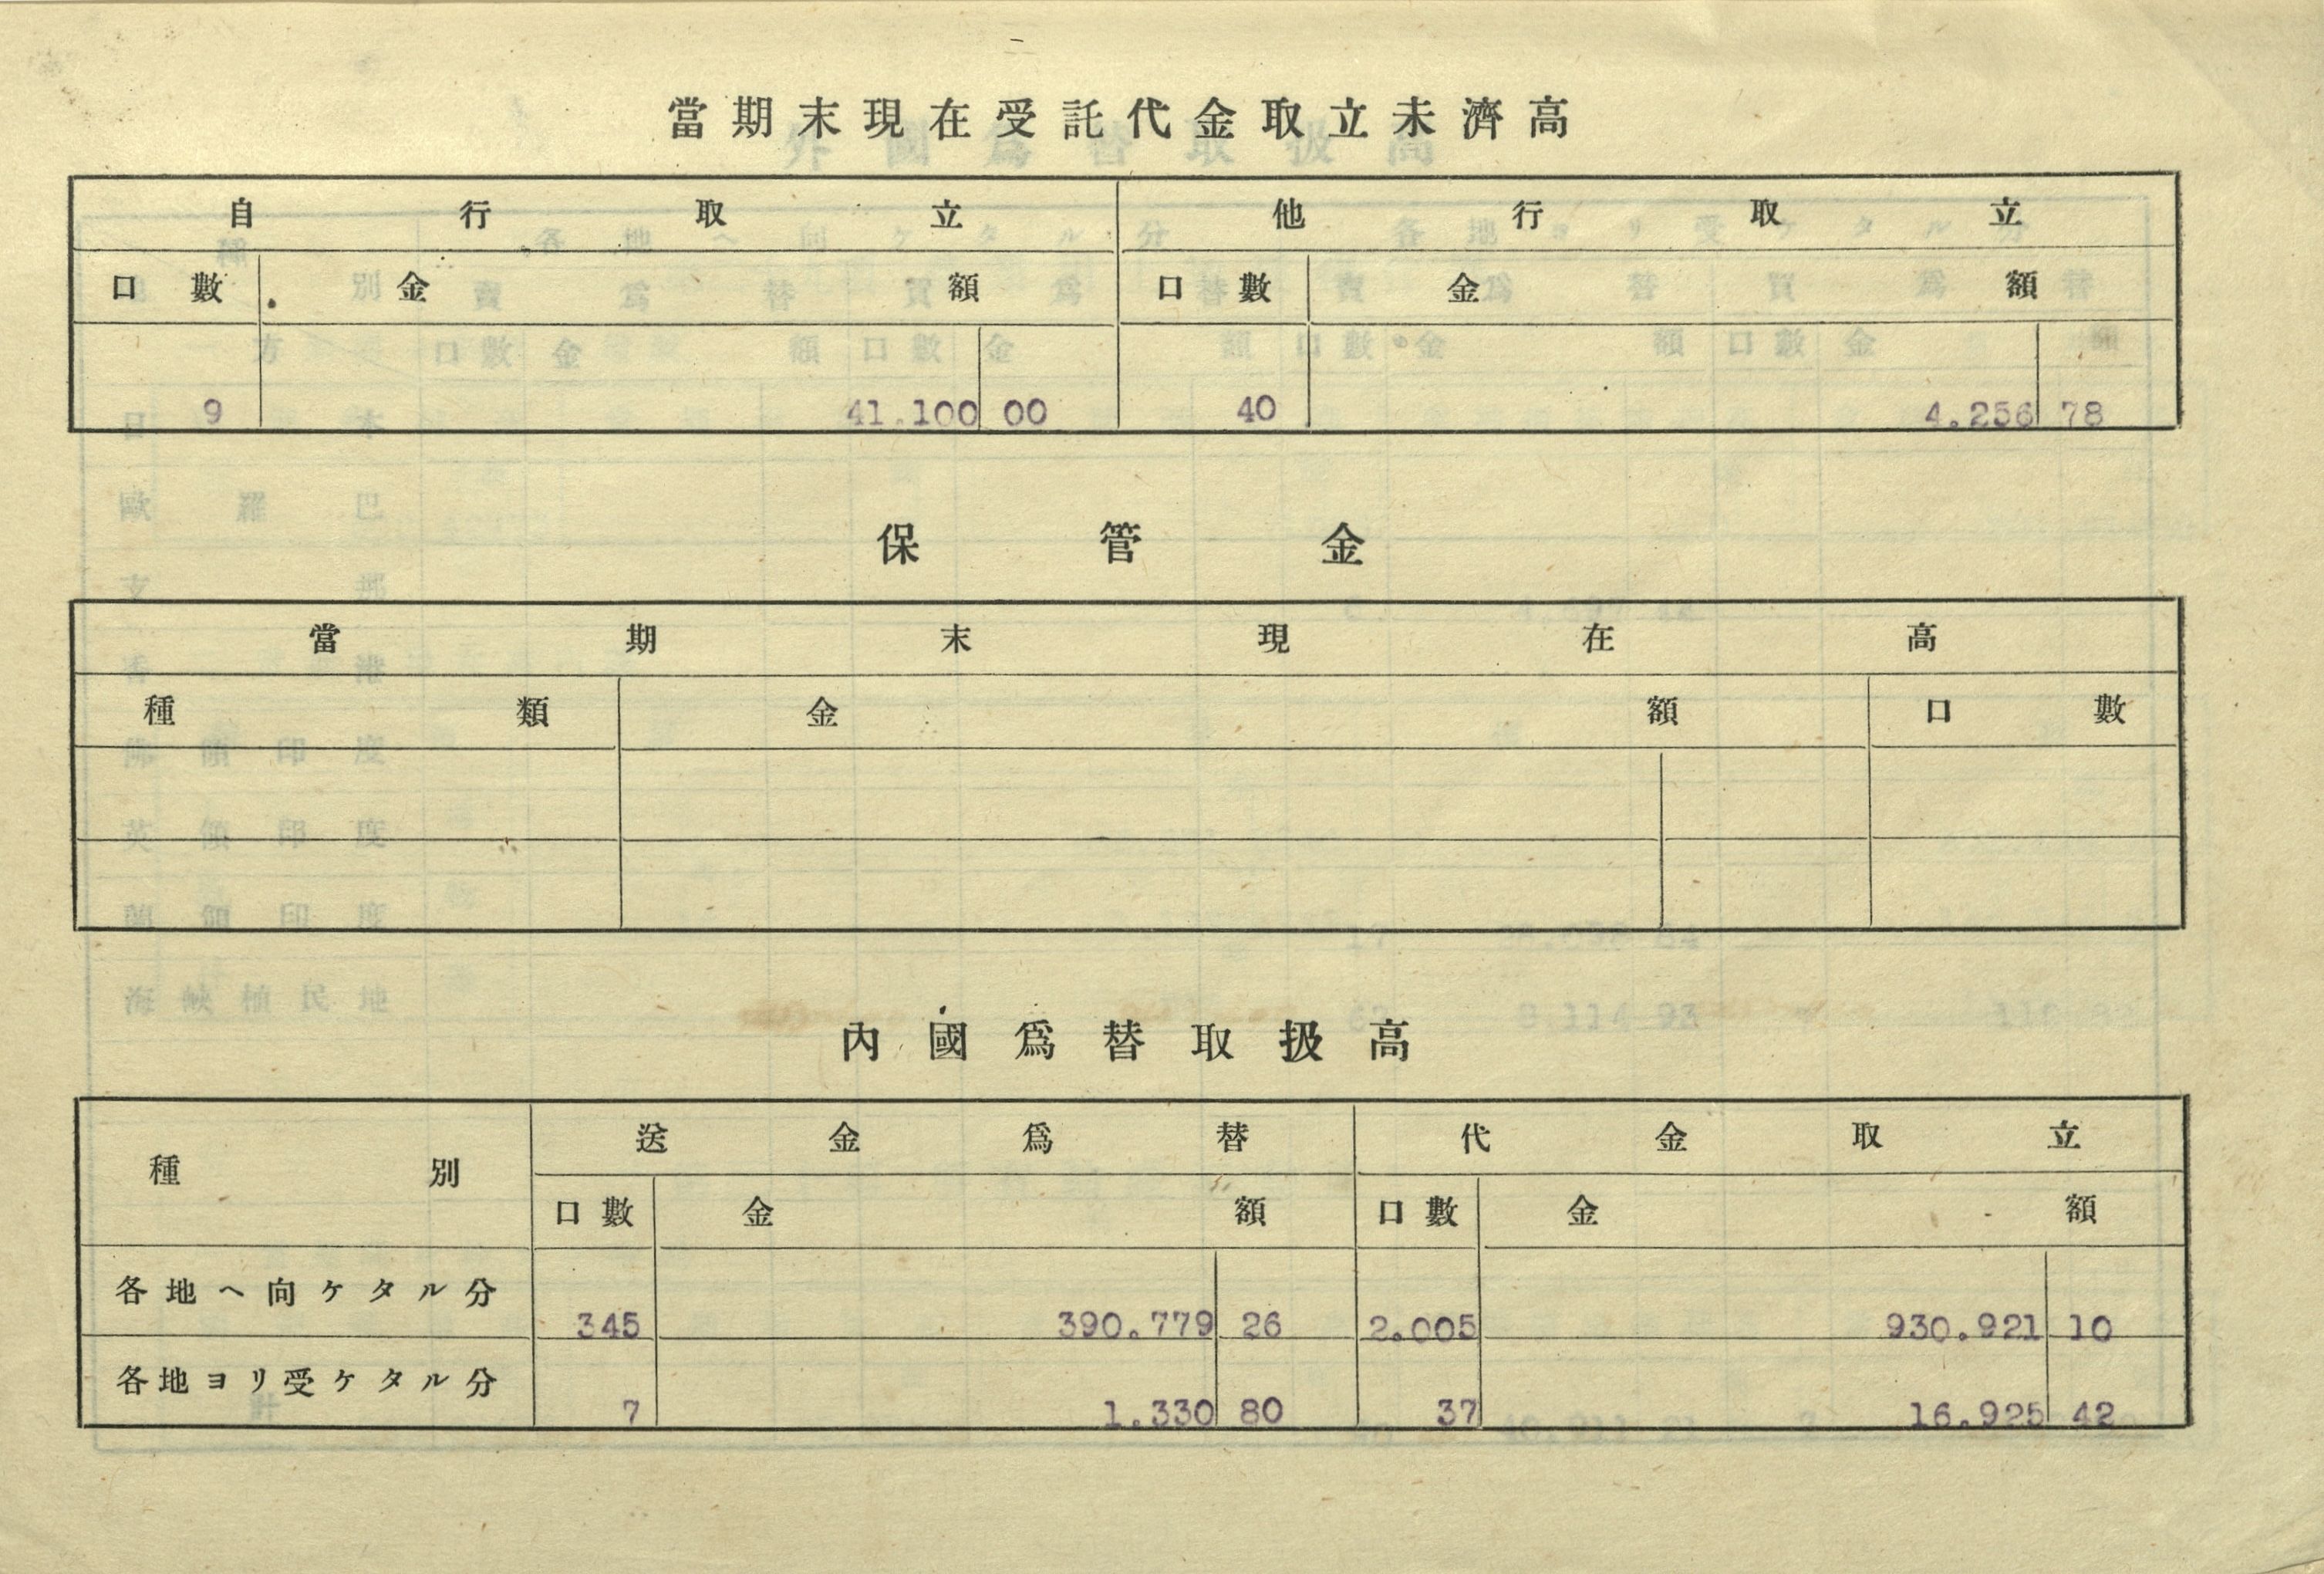 當期末現在受託代金取立未濟高
自行取立 他行取立
口數 金額 口數 金額
9 41.100 00 40 4.256 78
保管金
當期末現在高
種類 金額 口數
內國爲替取扱高
種別 送金爲替 代金取立
口數 金額 口數 金額
各地ヘ向ケタル分 345 390.779 26 2.005 930.921 10
各地ヨリ受ケタル分 7 1.330 80 37 16.925 42